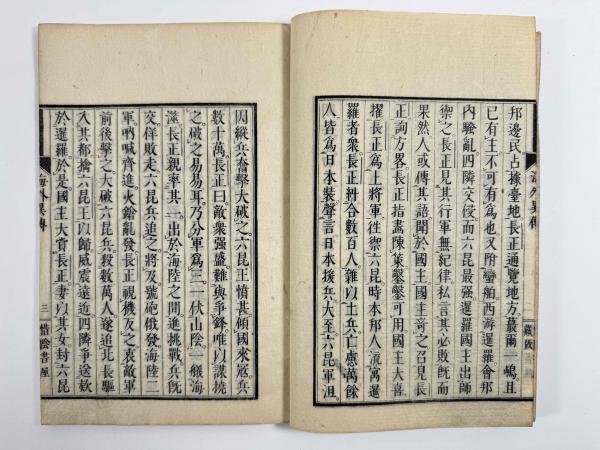 邦邊民占據臺地長正通覽地方蕞爾一嶋且
已有主不可有爲也又附蠻舶西游暹羅會邦
內騷亂四隣交侵而六昆最强暹羅國王出師
禦之長正見其行軍無紀律私言其必敗旣而
果然人或傳其語聞於國主國主奇之召見長
正詢方畧長正指畫陳策鑿鑿可用國主大喜
擢長正爲上將軍徃禦六昆時本邦人流寓暹
羅者衆長正糾合數百人雜以土兵亡慮萬餘
人皆爲日本裝聲言日本援兵大至六昆軍沮
海外異傳
藏板
囚縱兵奮擊大破之六昆王憤甚傾國來寇兵
數十萬長正曰敵衆强盛難與爭鋒唯以謀撓
之破之易易耳乃分軍爲三一伏山陰一艤海
滋長正親率其一出於海陸之間進挑戰兵旣
交佯敗走六昆兵追之將及號砲俄發海陸二
軍吶喊齊進火鎗亂發長正視機反之衷敵軍
前後擊之大破六昆兵殺數萬人遂追北長驅
入其都擒六昆王以歸威震遠近四隣爭送欵
於暹羅於是國主大賞長正妻以其女封六昆
海外異傳
三
惜陰書屋